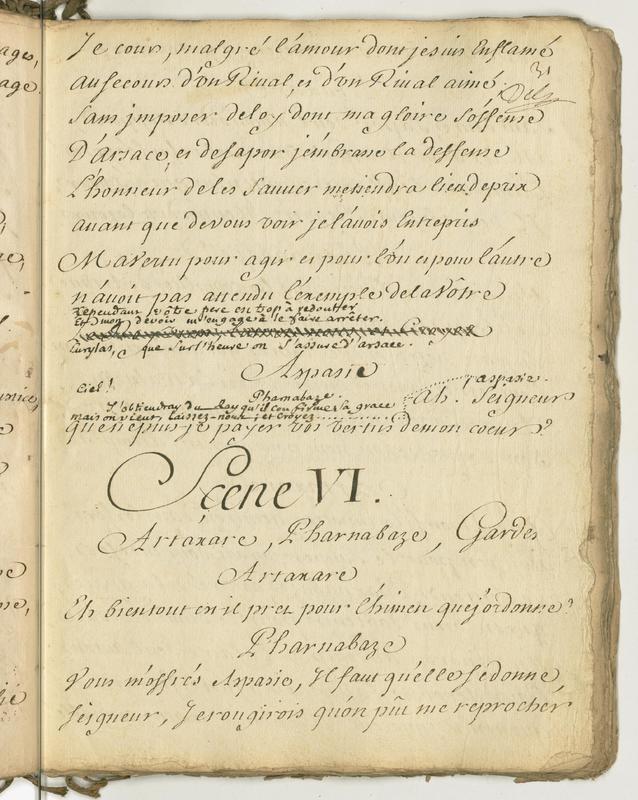 ages,
age.
Je cours, malgré l'amour dont je suis Enflamé
au secours d'un Rival, et d'un Rival aimé.
Sans jmposer de loy dont ma gloire s'offense
D'arsace et de sapor j'embrasse la deffense
L'honneur de les Sauver me tiendra lieu de prix
avant que de vous voir je l'avois Entrepris
Ma vertu pour agir et pour l'un et pour l'autre
n'avoit pas attendu l'exemple de la vôtre
Cependant vôtre pere est trop à redouter
Et mon devoir m'engage à le faire arrêter.
Eurylas, que sur l'heure on s'assure d'arsace.
Aspasie
Ciel!
Pharnabaze.
J'obtiendray du Roy qu'il confirme sa grace
mais on vient, laissez-nous, et croyez..........
aspasie.
Ah. Seigneur
que ne puis-je payer vos vertus de mon coeur?
Scene VI.
Artaxare, Pharnabaze, Gardes
Artaxare
Eh bien tout est il pret pour l'himen que j'ordonne?
Pharnabaze
Vous m'offrés Aspasie, Il faut qu'elle se donne,
Seigneur, Je rougirois qu'on pût me reprocher